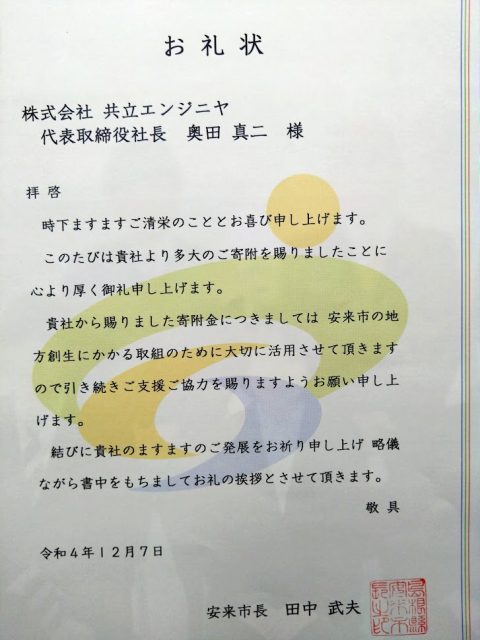 お礼状
株式会社 共立エンジニヤ
代表取締役社長 奥田 真二 様
拝啓
時下ますますご清栄のこととお喜び申し上げます。
このたびは貴社より多大のご寄附を賜りましたことに
心より厚く御礼申し上げます。
貴社から賜りました寄附金につきましては 安来市の地
方創生にかかる取組のために大切に活用させて頂きます
ので引き続きご支援ご協力を賜りますようお願い申し上
げます。
結びに貴社のますますのご発展をお祈り申し上げ 略儀
ながら書中をもちましてお礼の挨拶とさせて頂きます。
敬具
令和4年12月7日
安来市長 田中 武夫
島根縣
安来市
長之印